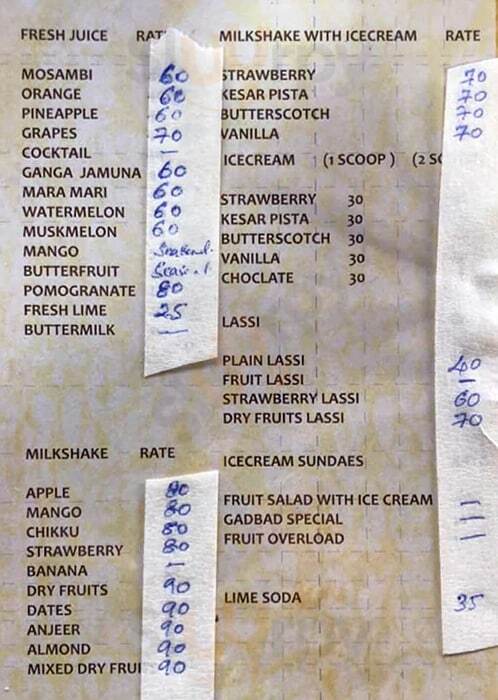 FRESH JUICE RAT
MOSAMBI 60
ORANGE 60
PINEAPPLE 60
GRAPES 70
COCKTAIL —
GANGA JAMUNA 60
MARA MARI 60
WATERMELON 60
MUSKMELON 60
MANGO
BUTTERFRUIT
POMOGRANATE 80
FRESH LIME 25
BUTTERMILK —
MILKSHAKE RATE
APPLE 80
MANGO 80
CHIKKU 80
STRAWBERRY 80
BANANA —
DRY FRUITS 90
DATES 90
ANJEER 90
ALMOND 90
MIXED DRY FRUI 90
MILKSHAKE WITH ICECREAM RATE
STRAWBERRY 70
KESAR PISTA 70
BUTTERSCOTCH 70
VANILLA 70
ICECREAM (1 SCOOP ) (2 SC
STRAWBERRY 30
KESAR PISTA 30
BUTTERSCOTCH 30
VANILLA 30
CHOCLATE 30
LASSI
PLAIN LASSI 40
FRUIT LASSI —
STRAWBERRY LASSI 60
DRY FRUITS LASSI 70
ICECREAM SUNDAES
FRUIT SALAD WITH ICE CREAM —
GADBAD SPECIAL —
FRUIT OVERLOAD —
LIME SODA 35